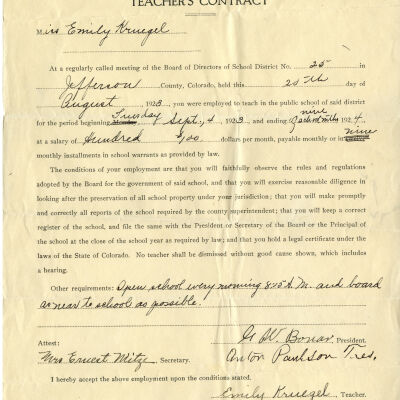 TEACHER'S CONTRACT
Miss Emily Kruegel
At a regularly called meeting of the Board of Directors of School District No. 25 in
Jefferson County, Colorado, held this 25th day of
August 1923, you were employed to teach in the public school of said district
for the period beginning Tuesday Sept. 4 1923, and ending nine school mths 1924,
at a salary of Hundred $/00 dollars per month, payable monthly or in nine
monthly installments in school warrants as provided by law.
The conditions of your employment are that you will faithfully observe the rules and regulations
adopted by the Board for the government of said school, and that you will exercise reasonable diligence in
looking after the preservation of all school property under your jurisdiction; that you will make promptly
and correctly all reports of the school required by the county superintendent; that you will keep a correct
register of the school, and file the same with the President or Secretary of the Board or the Principal of
the school at the close of the school year as required by law; and that you hold a legal certificate under the
laws of the State of Colorado. No teacher shall be dismissed without good cause shown, which includes
a hearing.
Other requirements: Open school every morning 8:45 A.M. and board
as near to school as possible.
G. W. Bonar, President.
Attest: Anton Paulson Tres.
Mrs Ernest Mitze, Secretary.
I hereby accept the above employment upon the conditions stated.
Emily Kruegel, Teacher.